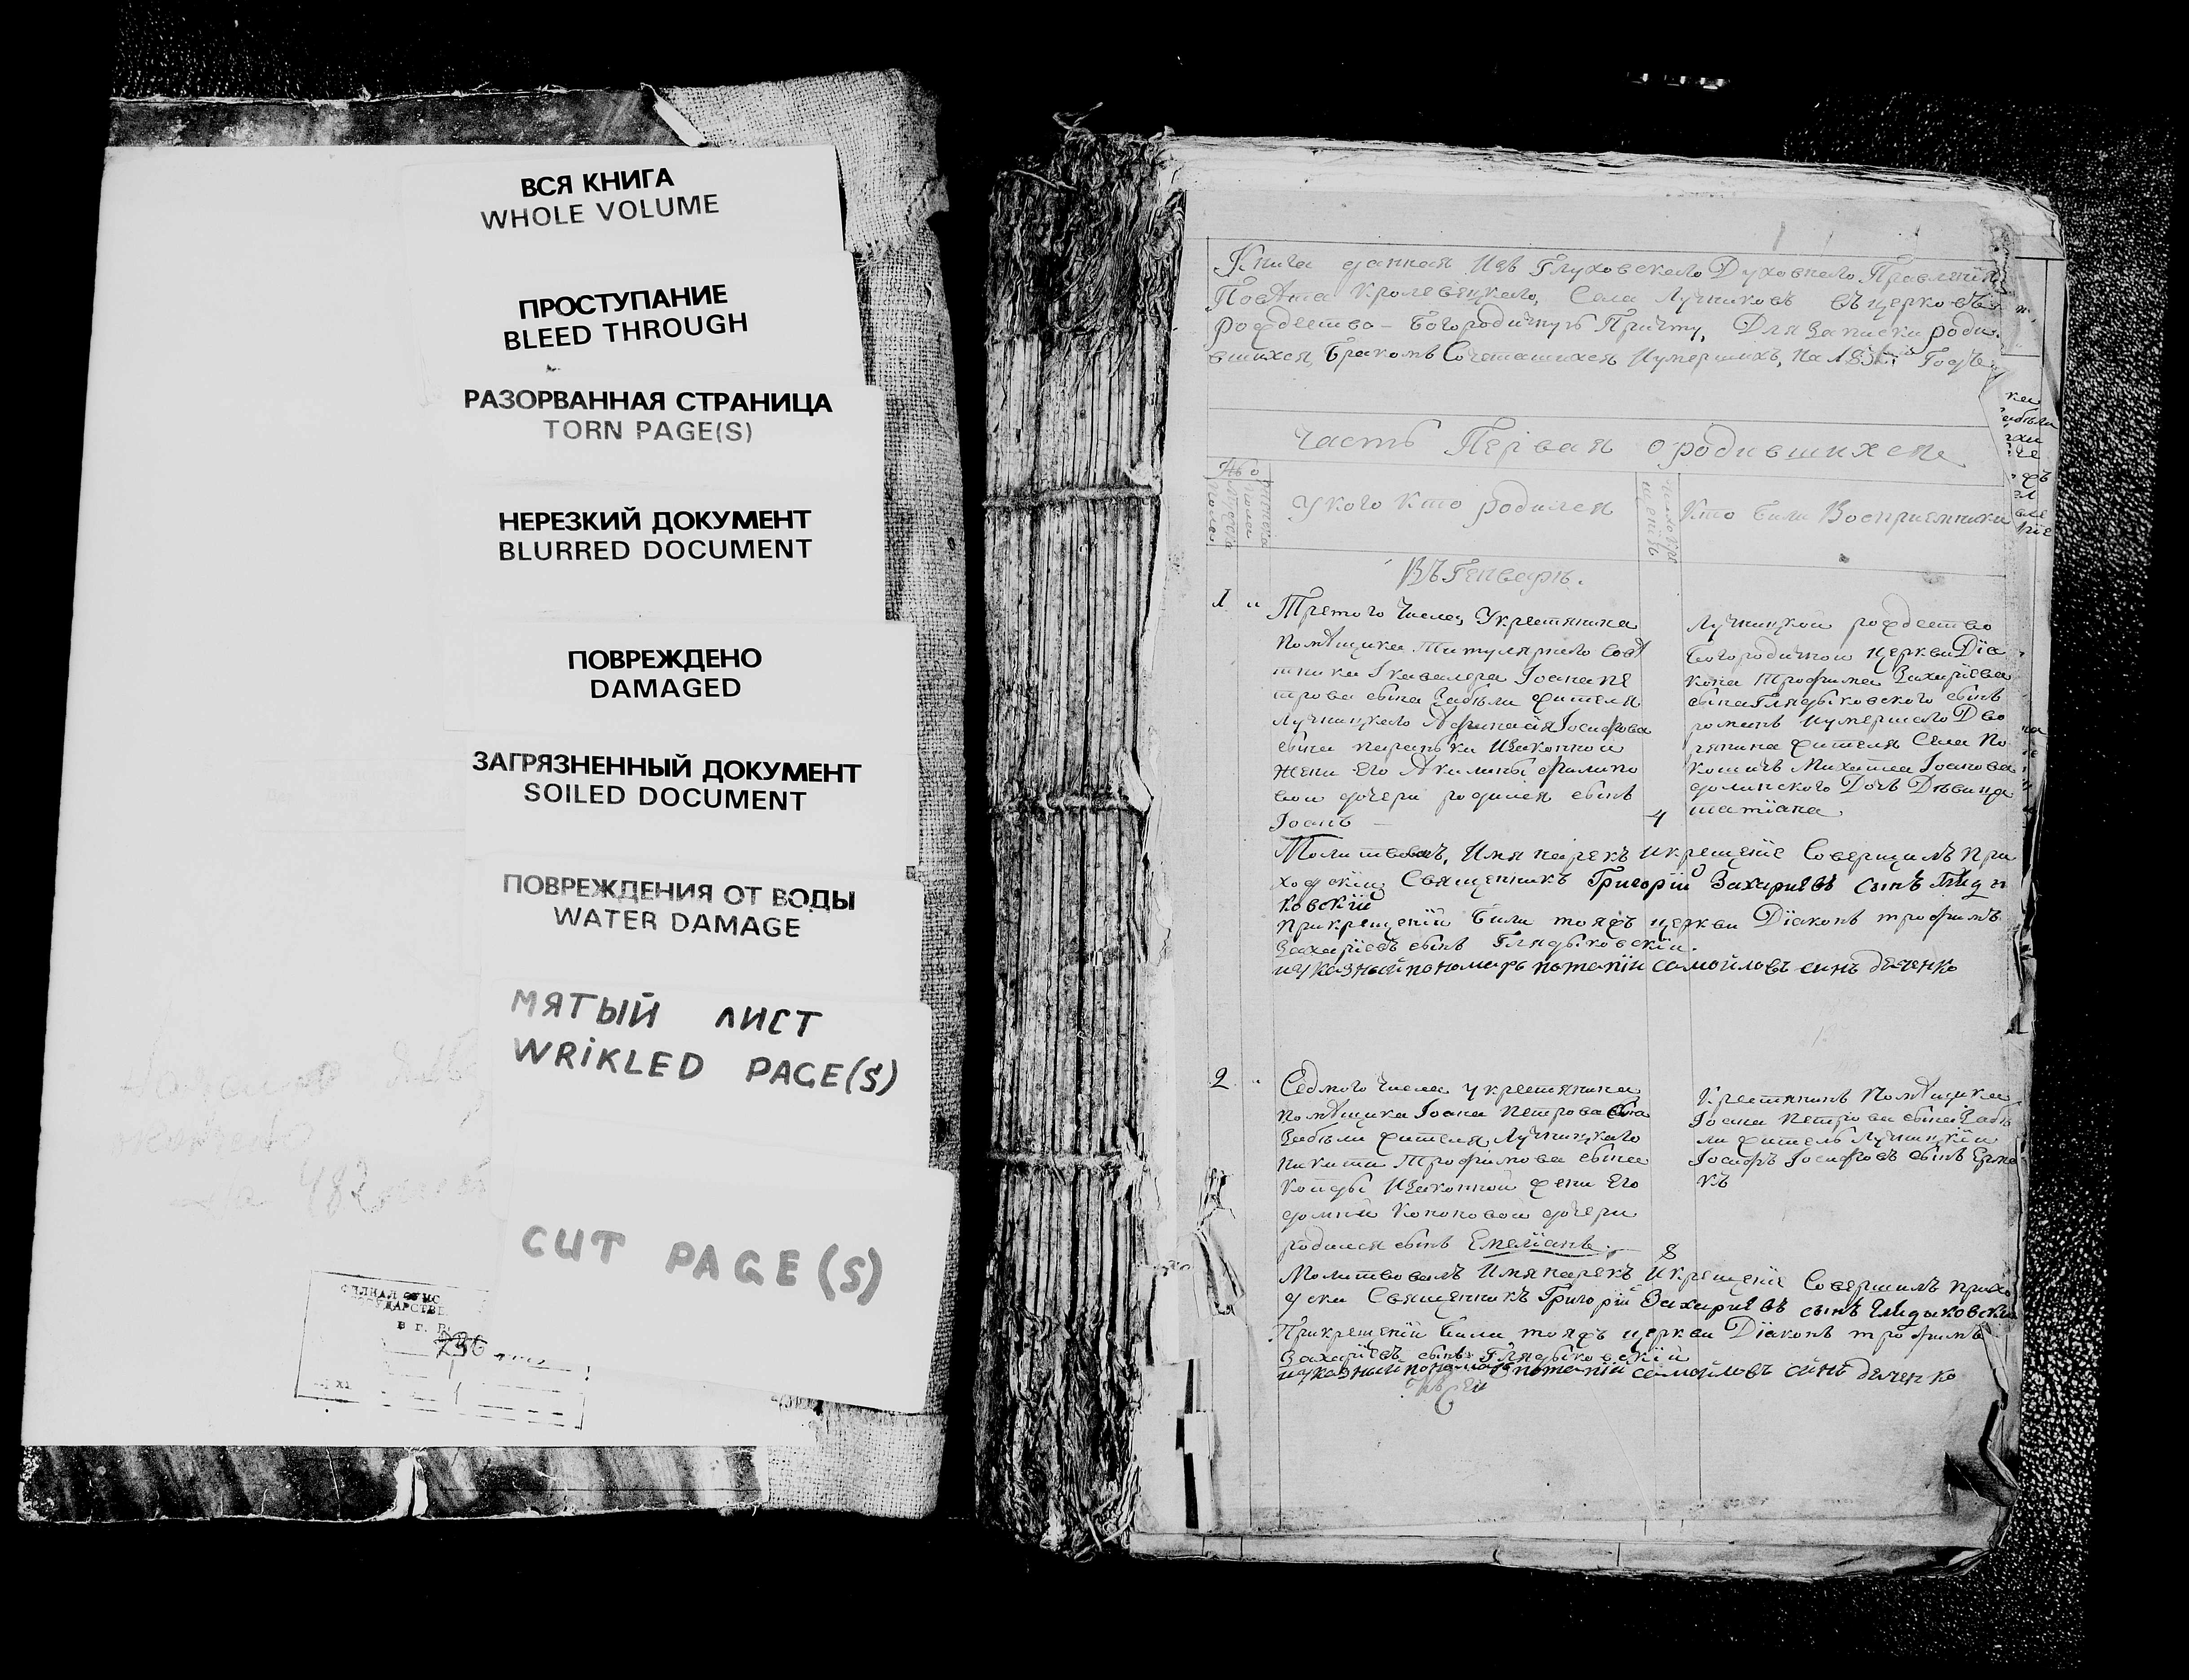 ВСЯ КНИГА
WHOLE VOLUME
ПРОСТУПАНИЕ
BLEED THROUGH
РАЗОРВАННАЯ СТРАНИЦА
TORN PAGE(S)
НЕРЕЗКИЙ ДОКУМЕНТ
BLURRED DOCUMENT
ПОВРЕЖДЕНО
DAMAGED
ЗАГРЯЗНЕННЫЙ ДОКУМЕНТ
SOILED DOCUMENT
ПОВРЕЖДЕНИЯ ОТ ВОДЫ
WATER DAMAGE
МЯТЫЙ ЛИСТ
WRiKLED PAGE(S)
CUT PAGE(S)
Книга данная Изъ Глуховского Духовного Правленія
Повѣта Кролевецкого, Села Лучниковъ въ церковъ
рождество-Богородичную Причту, Для Записки роди
вшихся, Бракомъ Сочеташихся Иумершихъ, на Годъ
Часть Первая ородившихся
Укого Кто родился
Кто были Восприемники
Въ Генварѣ.
1
Третого Числа, Укрестянина
Помѣщика Титулярного Совѣ
тника Ікавалера Іоана пе
трова сына Забѣлы жителя
Лучницкого Афанасія Іосифова
сына Изаконной
жены Его Акилины Филипо
вой дочери родился сынъ
Іоанъ
4
Лучницкой рождество
Богородичной церкви Діа
кона Трофима Захаріева
сына Глядыковского сынъ
романъ Иумершого Дво
рянина жителя Села По
кошичъ Михаила Іоанова
долинского Дочь Дѣвица
татіана
Молитвовалъ, Имя нарекъ Икрещеніе Совершилъ При
ходскій Священникъ Григорій Захаріевъ сынъ Гляды
ковскій
Прикрещеніи были тояжъ церкви Діаконъ трофимъ
Захаріевъ сынъ Глядыковскій.
иуказный пономарь потапій самойловъ синъ дяченко
2
Седмого Числа укрестянина
Помѣщика Іоана Петрова сына
Забѣлы жителя Лучницкого
Никиты Трофимова сына
Изаконной жены Его
домніи Кононовой дочери
родился сынъ Емеліанъ.
8
Крестянинъ Помѣщика
Іоана Петрова сына Забѣ
лы житель Лучницкій
Іосифъ Іосифовъ сынъ Ерма
къ
Молитвовалъ Имянарекъ Икрещеніе Совершилъ прихо
дски Священникъ Григорій Захаріевъ сынъ Глядыковски
Прикрещеніи были тояжъ церкви Діаконъ трофимъ
Захаріевъ сынъ Глядыковскій
иуказный пономарь потапій самойловъ синъ дяченко